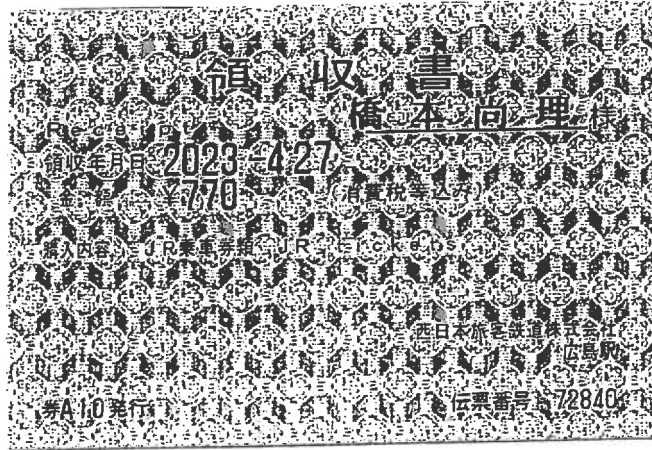 領収書
橋本尚理 様
Receipt
領収年月日 2023.-4.27
金額 ¥770 (消費税等込み)
購入内容 JR乗車券類 JR tickets
西日本旅客鉄道株式会社
広島駅
券A10発行
伝票番号 72840